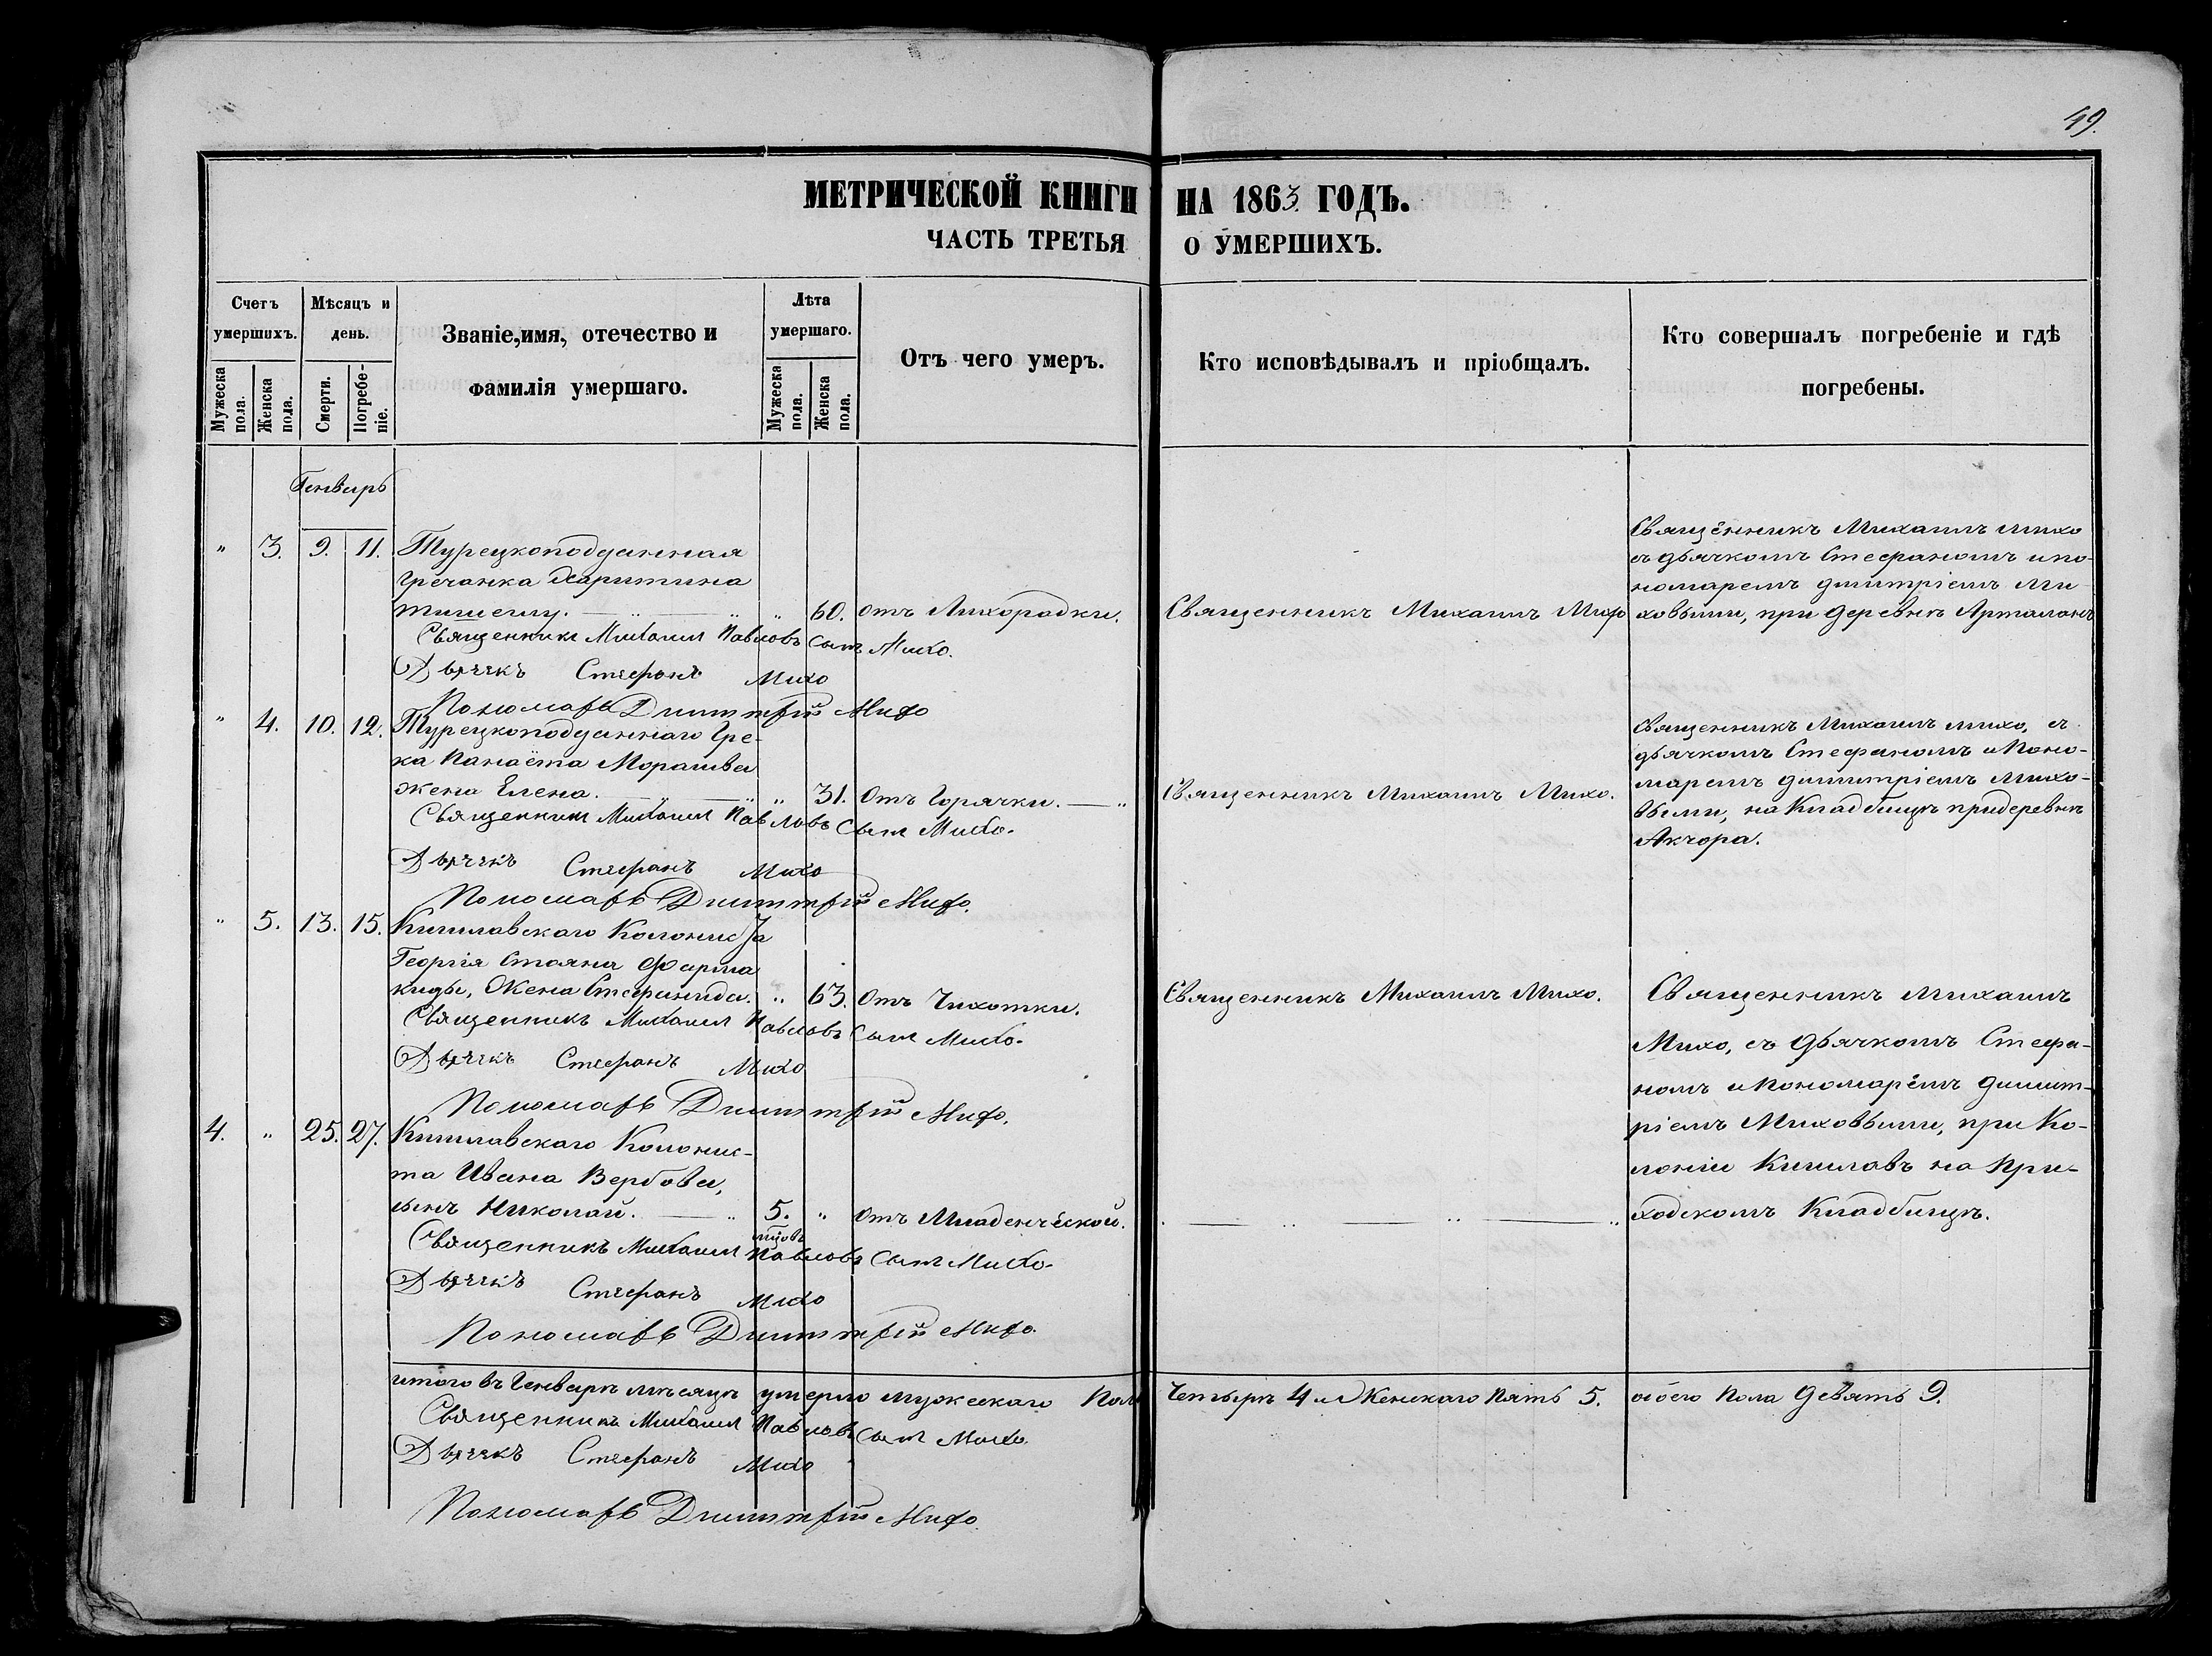 49.
МЕТРИЧЕСКОЙ КНИГИ НА 1863 ГОДЪ.
ЧАСТЬ ТРЕТЬЯ О УМЕРШИХЪ.
Счетъ умершихъ.
Мужеска пола.
Женска пола.
Мѣсяцъ и день.
Смерти.
Погребе-
ніе.
Званіе, имя, отечество и
фамилія умершаго.
Лѣта умершаго.
Мужеска пола.
Женска пола.
Отъ чего умеръ.
Кто исповѣдывалъ и пріобщалъ.
Кто совершалъ погребеніе и гдѣ
погребены.
Генварь
" 3. 9. 11. Турецкоподданная
гречанка Харитина
" 60. отъ Лихорадки.
Священникъ Михаилъ Михо
Священникъ Михаилъ Михо
съ дьячкомъ Стефаномъ и по-
номаремъ Димитріемъ Ми
ховыми, при деревнѣ
Священникъ Михаил Павловъ Сынъ Михо.
Дьячекъ Стефанъ Михо
Пономарь Димитрій Михо
" 4. 10. 12. Турецкоподданнаго Гре-
ка Панаёта
жена Елена. " 31. Отъ Горячки.
Священникъ Михаилъ Михо.
Священникъ Михаилъ Михо, съ
дьячкомъ Стефаномъ и Поно-
маремъ Димитріемъ Михо-
выми, на Кладбищѣ при деревнѣ
Акчора.
Священникъ Михаил Павловъ Сынъ Михо.
Дьячекъ Стефанъ Михо
Пономарь Димитрій Михо.
" 5. 13. 15. Кишлавскаго Колониста
Георгія Стояна Фарма
киды, Жена Стефанида. " 63. Отъ Чихотки.
Священникъ Михаилъ Михо.
Священникъ Михаилъ
Михо, съ дьячкомъ Стефа-
номъ и Пономарёмъ Димит-
ріемъ Миховыми, при Ко-
лоніи Кишлавъ на При-
ходскомъ Кладбищѣ.
Священникъ Михаил Павловъ Сынъ Михо.
Дьячекъ Стефанъ Михо
Пономарь Димитрій Михо.
4. " 25. 27. Кишлавскаго Колонис-
та Ивана Вербова,
сынъ Николай. 5. " Отъ Младенческой.
Священникъ Михаил Павловъ Сынъ Михо.
Дьячекъ Стефанъ Михо
Пономарь Димитрій Михо.
Итого въ Генварѣ мѣсяцѣ умерло мужескаго Пола Четыре 4 и Женскаго Пять 5. обоего Пола Девять 9.
Священникъ Михаил Павловъ Сынъ Михо
Дьячекъ Стефанъ Михо
Пономарь Димитрій Михо.